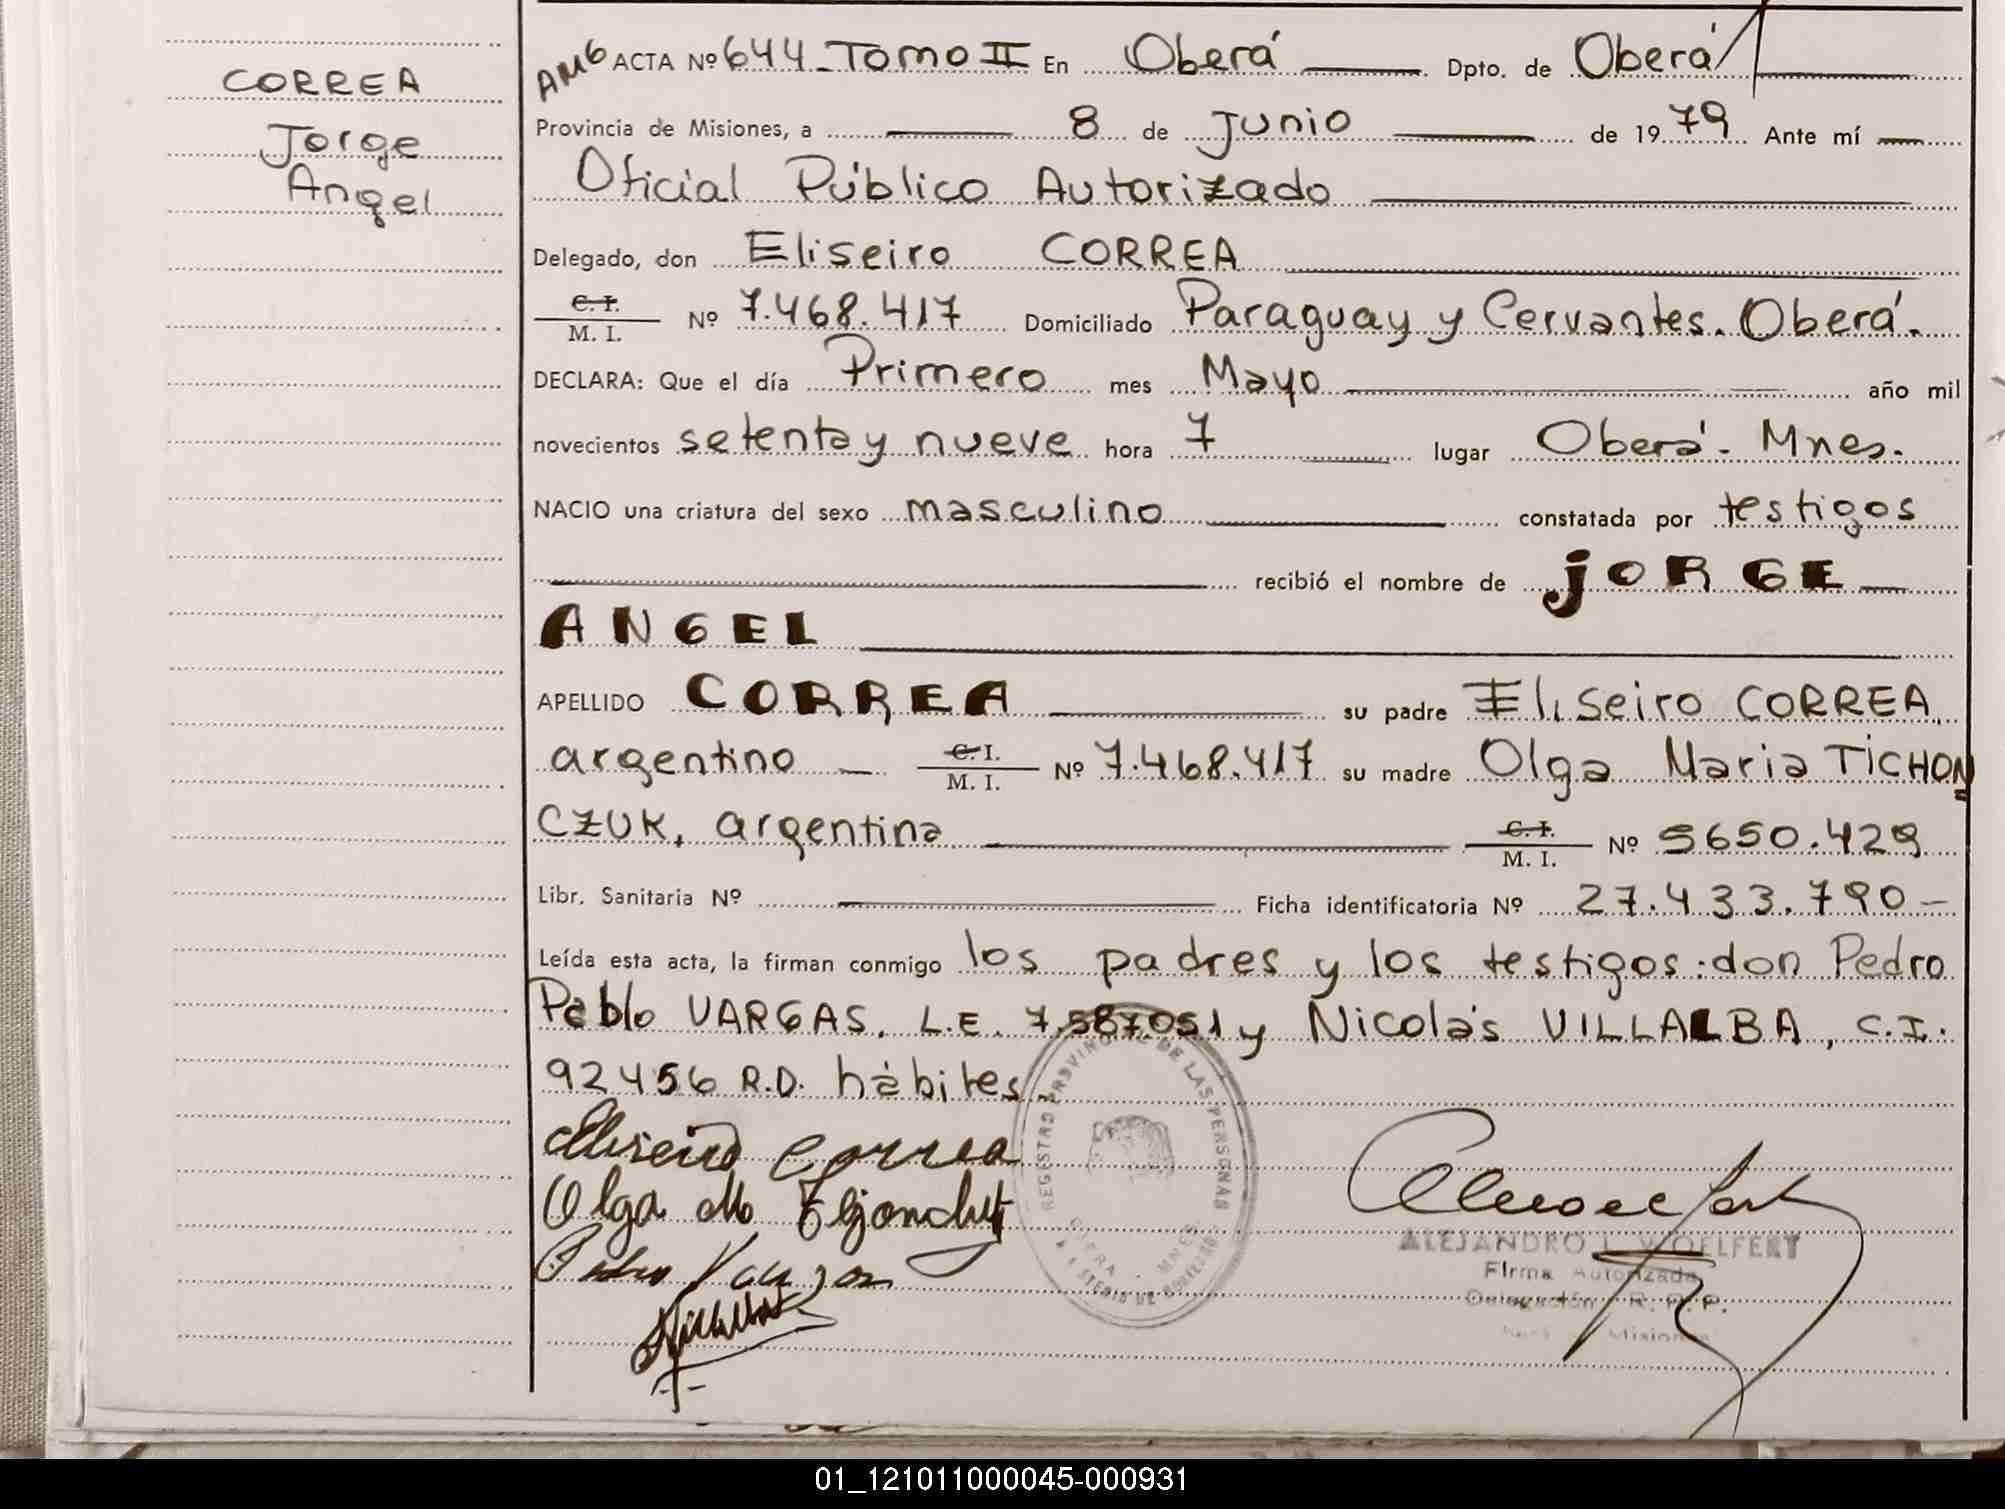 CORREA
Jorge
Angel
AMG ACTA Nº 644 - Tomo II En Oberá Dpto. de Oberá
Provincia de Misiones, a 8 de Junio de 1979 Ante mí
Oficial Público Autorizado
Delegado, don Eliseiro CORREA
C. I. M. I. Nº 7.468.417 Domiciliado Paraguay y Cervantes. Oberá.
DECLARA: Que el día Primero mes Mayo año mil
novecientos setenta y nueve hora 7 lugar Oberá - Mnes.
NACIO una criatura del sexo masculino constatada por testigos
recibió el nombre de JORGE
ANGEL
APELLIDO CORREA su padre Eliseiro CORREA
argentino C. I. M. I. Nº 7.468.417 su madre Olga Maria TICHON
CZUK, argentina C. I. M. I. Nº 5650.429
Libr. Sanitaria Nº Ficha identificatoria Nº 27.433.790 -
Leída esta acta, la firman conmigo los padres y los testigos: don Pedro
Pablo VARGAS, L.E. 7.587.051 y Nicolás VILLALBA, C.I.
92456 R.D. hàbiles
Eliseiro Correa
Olga M
Pedro Vargas
REGISTRO PROVINCIAL DE LAS PERSONAS
OBERA - MNES
ALEJANDRO L. WOELFERT
Firma Autorizada
Delegación R. P. P.
Misiones
01_121011000045-000931